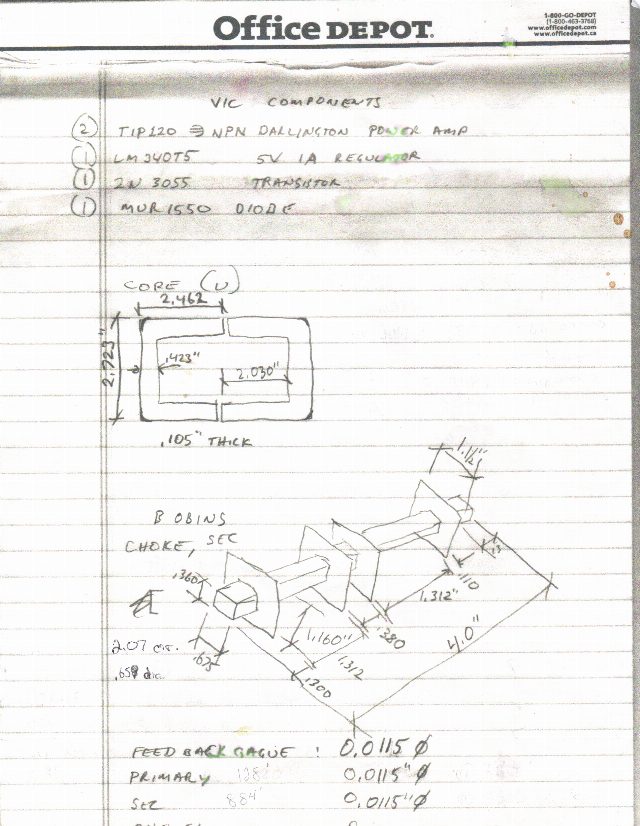 Office DEPOT.
1-800-GO-DEPOT
(1-800-463-3768)
www.officedepot.com
www.officedepot.ca
VIC COMPONENTS
(2) TIP120 NPN DARLINGTON POWER AMP
(1) LM340T5 5V 1A REGULATOR
(1) 2N 3055 TRANSISTOR
(1) MUR1550 DIODE
CORE (U)
2.462
2.723"
.423"
2.030"
.105" THICK
1.1/2"
BOBINS
CHOKE, SEC
.360
.110
1.312"
.380
4.0"
1.160"
1.312
.300
.675
2.07 cir.
.659 dia.
FEEDBACK GAGUE : 0.0115 Ø
PRIMARY 128' 0.0115" Ø
SEC 884' 0.0115" Ø